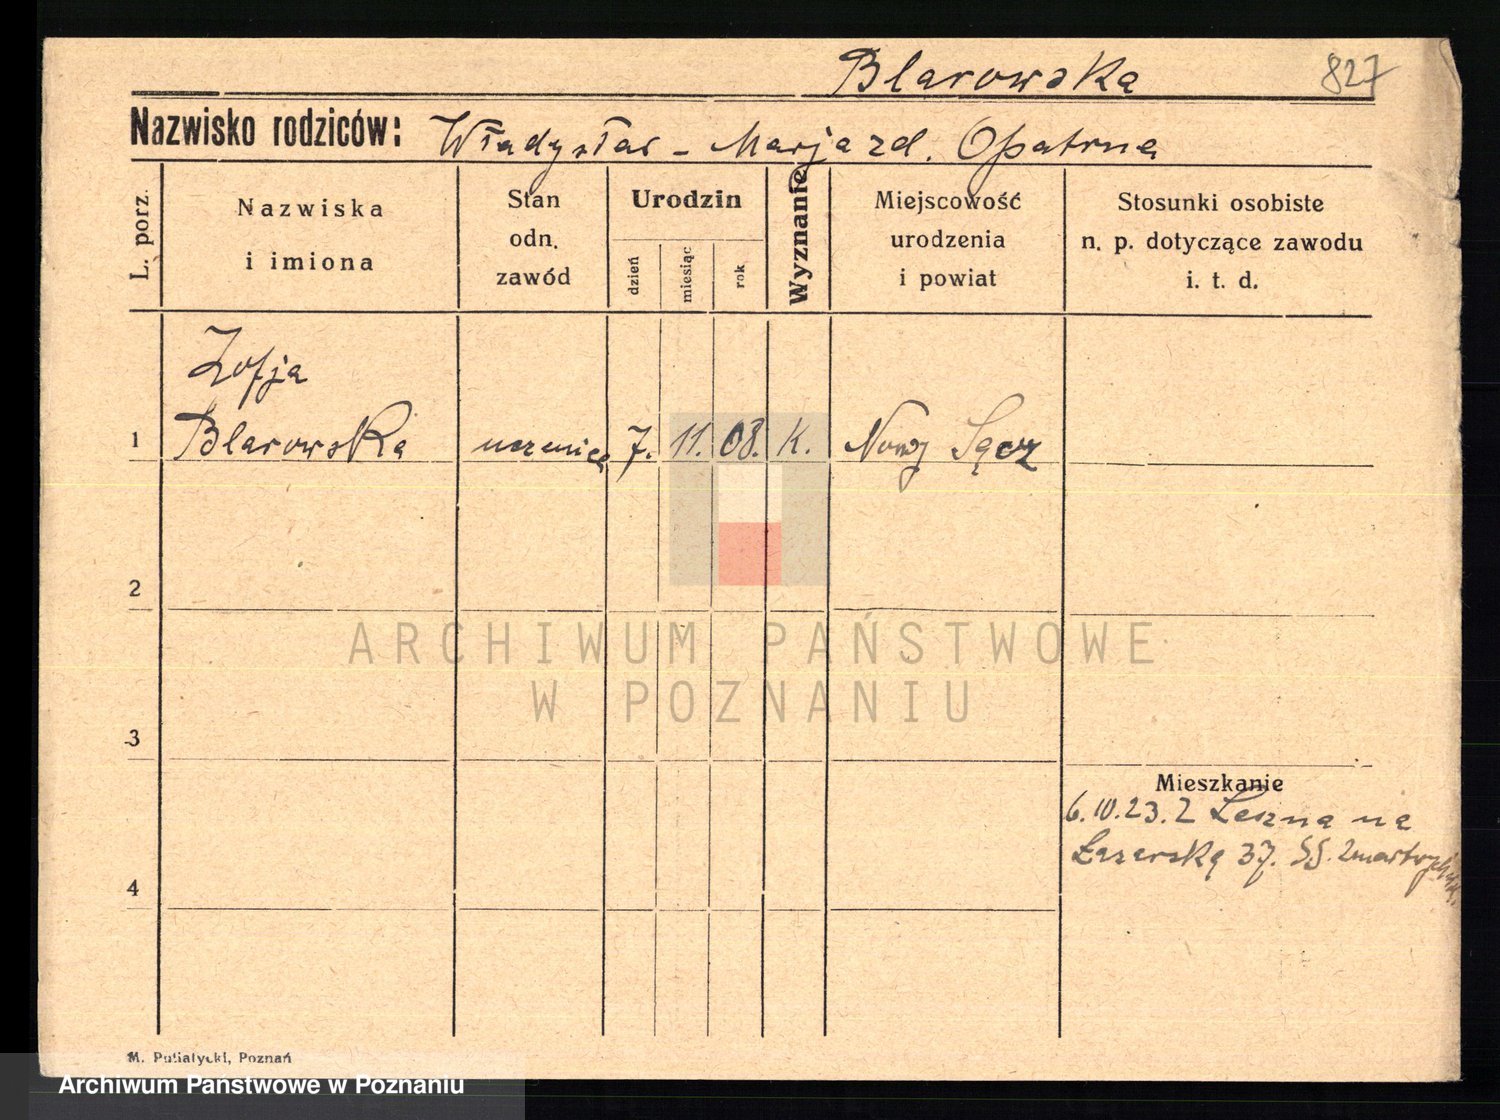 Blarowska 827
Nazwisko rodziców: Władysław - Marja zd. Opatrna
L. porz.
Nazwiska
i imiona
Stan
odn.
zawód
Urodzin
dzień
miesiąc
rok
Wyznanie
Miejscowość
urodzenia
i powiat
Stosunki osobiste
n. p. dotyczące zawodu
i. t. d.
Zofja
1 Blarowska uczenica 7. 11. 08. K. Nowy Sącz
2
ARCHIWUM PAŃSTWOWE
W POZNANIU
3
Mieszkanie
6.10.23. Z Leszna na
Łazarską 37. SS. Zmartwychw.
4
M. Putiatycki, Poznań
Archiwum Państwowe w Poznaniu